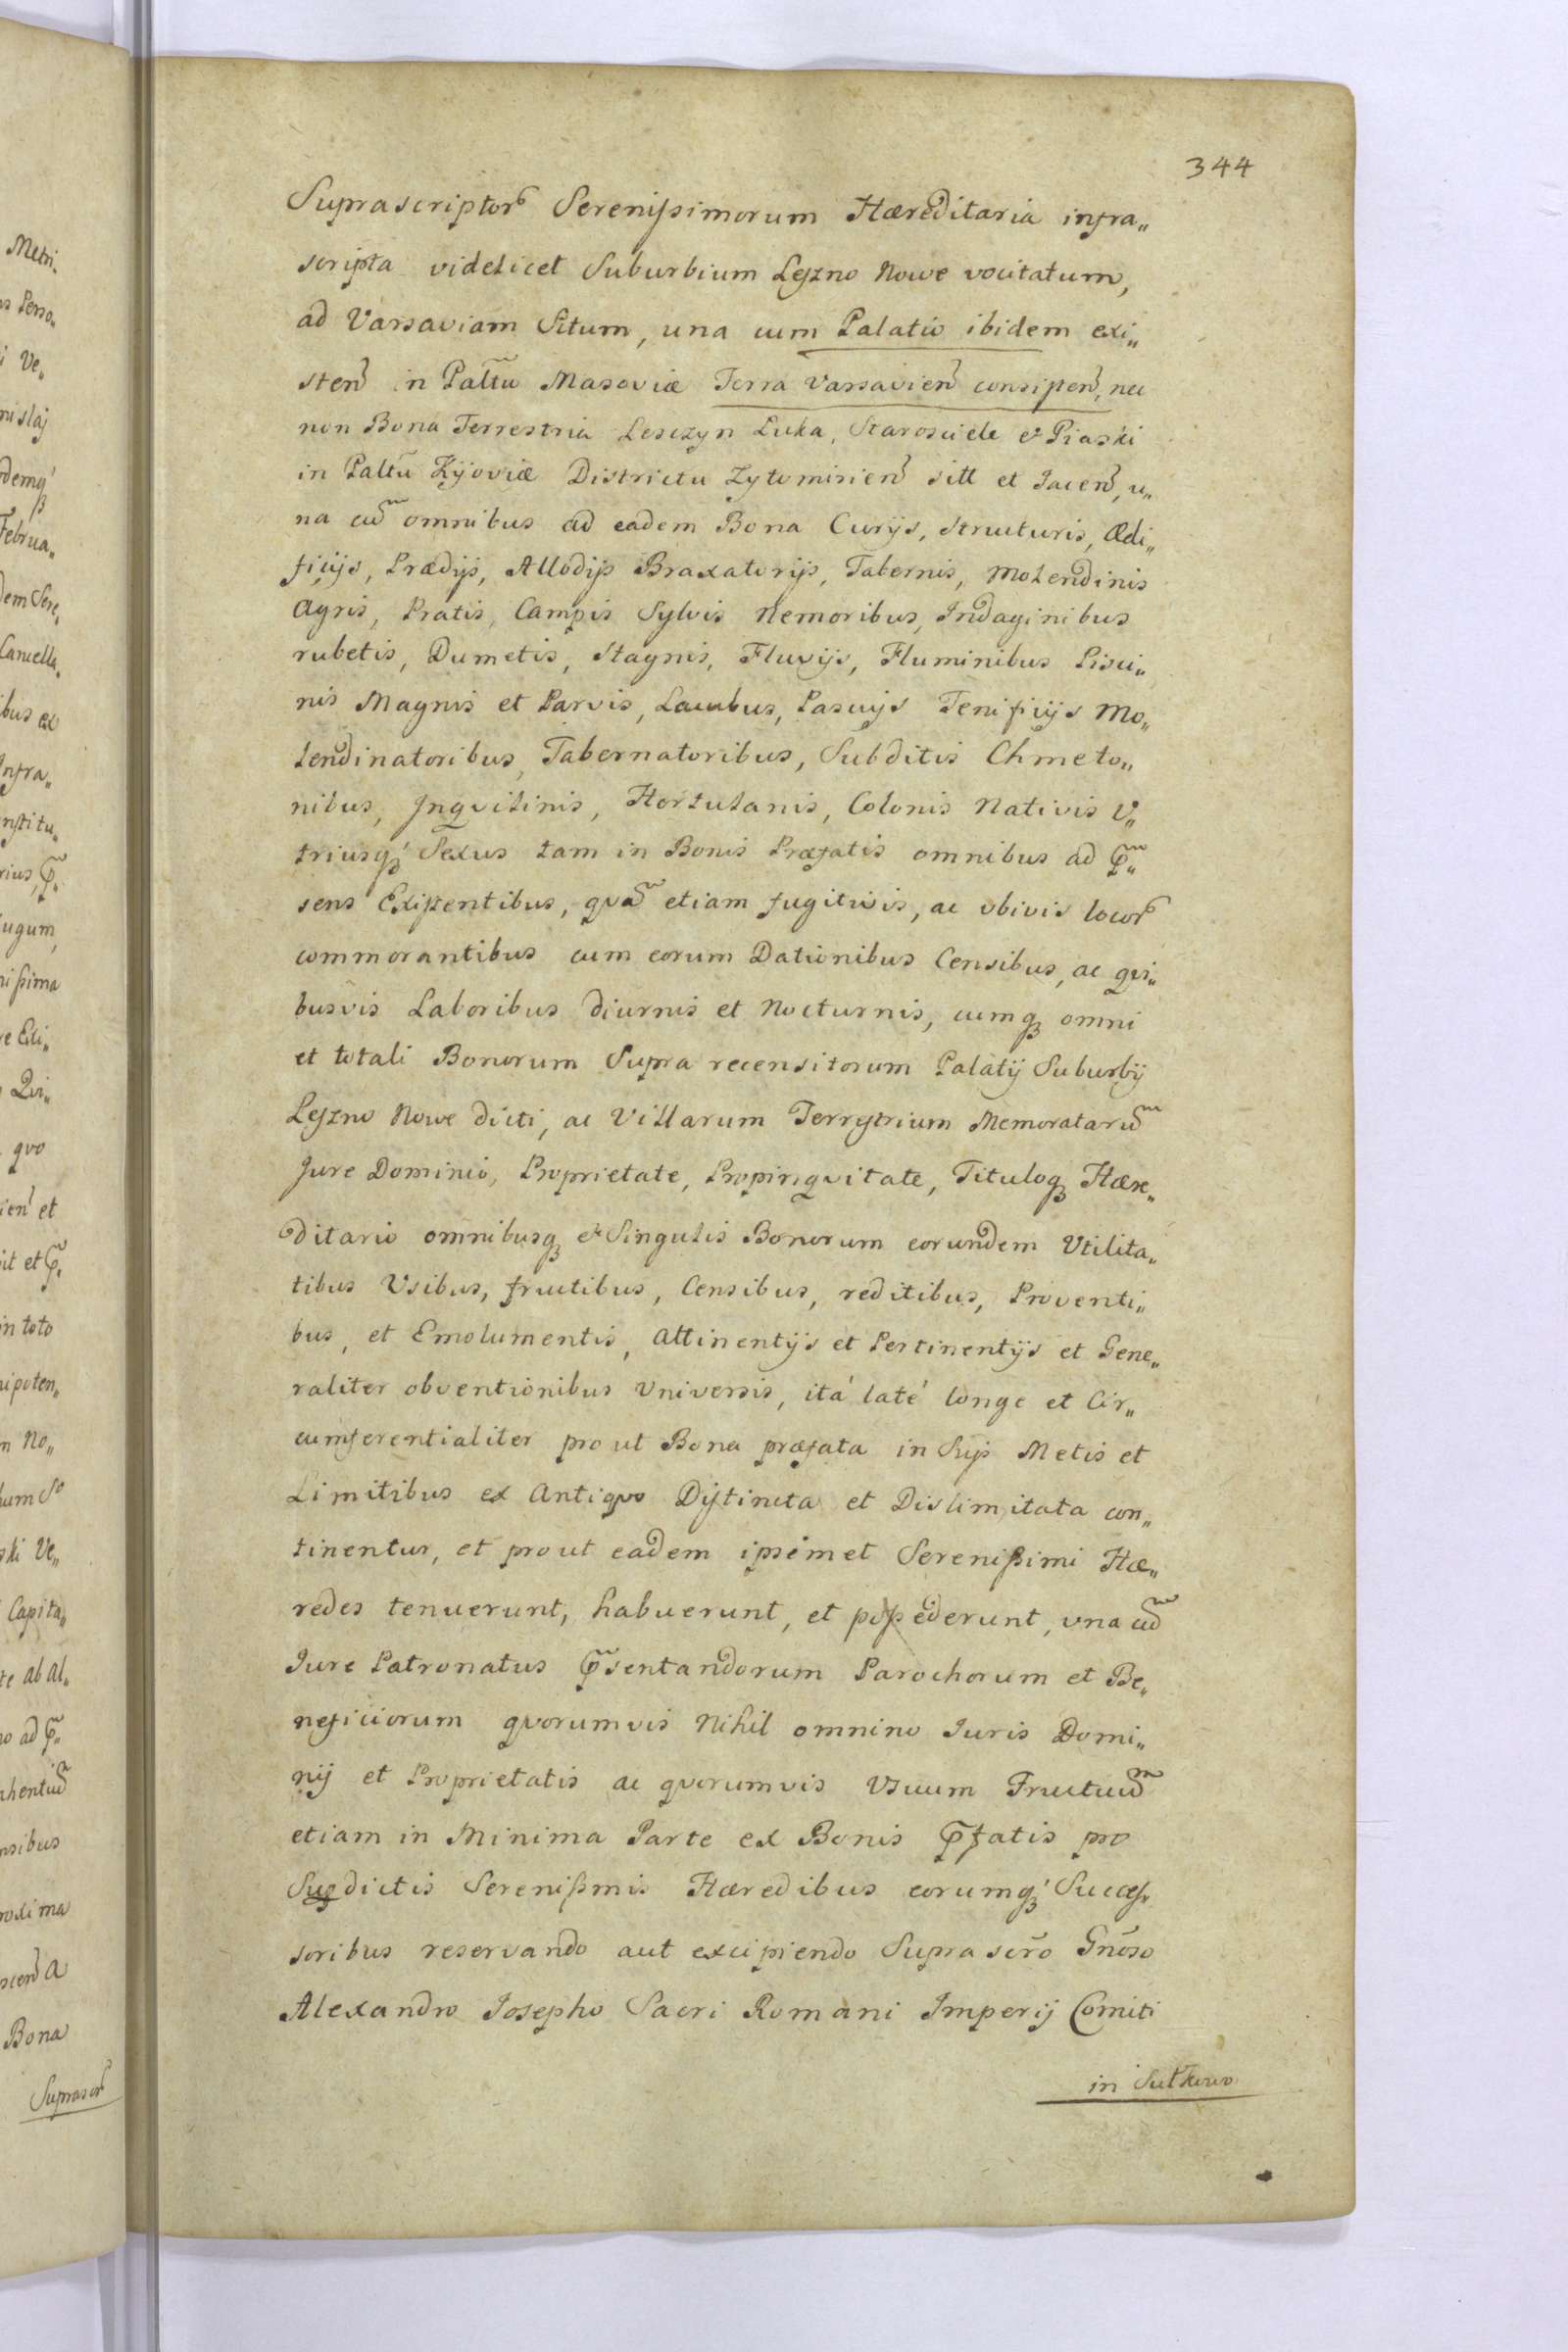 344
Suprascriptor̃ Serenissimorum Hæreditaria infra„
scripta videlicet Suburbium Leszno Nowe vocitatum,
ad Varsaviam Situm, una cum Palatio ibidem exi„
sten̄ in Paltũ Masoviæ Terra Varsavien̄ consisten̄, nec
non Bona Terrestria Lesczyn Łuka, Starosciele et Piaski
in Paltũ Kijoviæ Districtu Zytomirien̄ sitt et Jacen̄, u„
na cũ omnibus ad eadem Bona Curijs, Structuris, Ædi„
ficijs, Prædijs, Allodijs Braxatorijs, Tabernis, Molendinis
Agris, Pratis, Campis Sylvis Nemoribus, Indaginibus
rubetis, Dumetis, Stagnis, Fluvijs, Fluminibus Pisci„
nis Magnis et Parvis, Lacubus, Pascuijs Fenificijs Mo„
lendinatoribus, Tabernatoribus, Subditis Chmeto„
nibus, Inqvilinis, Hortulanis, Colonis Nativis V„
triusq́ꝫ Sexus tam in Bonis Præfatis omnibus ad p̃„
sens Existentibus, qvã etiam fugitivis, ac vbivis locor̃
commorantibus cum eorum Dationibus Censibus, ac qvi„
busvis Laboribus diurnis et Nocturnis, cumqꝫ omni
et totali Bonorum Supra recensitorum Palatij Suburbij
Leszno Nowe dicti, ac Villarum Terrestrium Memoratarũ
Jure Dominio, Proprietate, Propinqvitate, Tituloqꝫ Hære„
ditario omnibusqꝫ et Singulis Bonorum eorundem Vtilita„
tibus Vsibus, fructibus, Censibus, reditibus, Proventi„
bus, et Emolumentis, Attinentijs et Pertinentijs et Gene„
raliter obventionibus Vniversis, itá laté longe et Cir„
cumferentialiter pro ut Bona præfata in Suis Metis et
Limitibus ex Antiqvo Distincta et Dislimitata con„
tinentur, et prout eadem ipsimet Serenissimi Hæ„
redes tenuerunt, habuerunt, et possederunt, vna cũ
Iure Patronatus p̃sentandorum Parochorum et Be„
neficiorum qvorumvis Nihil omnino Iuris Domi„
nij et Proprietatis ac qvorumvis Vsuum Fructuũ
etiam in Minima Parte ex Bonis p̃fatis pro
Supdictis Serenissmis Hæredibus eorumq́ꝫ Succes„
soribus reservando aut excipiendo Suprascr̃o Gn̄oso
Alexandro Josepho Sacri Romani Imperij Comiti
in Sułkowo
Metri„
Perso„
Ve„
Februa„
Cancella„
ibus ex
Infra„
nstitu„
rius, p̃„
ugum,
Qvi„
qvo
ien̄ et
it et p̃„
in toto
nipoten„
No„
Ve„
Capita„
te ab al„
o ad p̃„
ahentiũ
nsibus
roxima
Bona
Suprascr̃